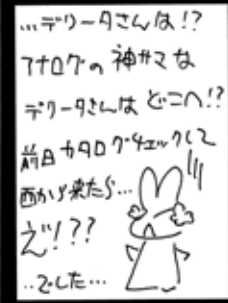 …デリータさんは!?
アナログの神サマな
デリータさんはどこへ!?
前日カタログチェックして
西から来たら…
え"!??
…でした…